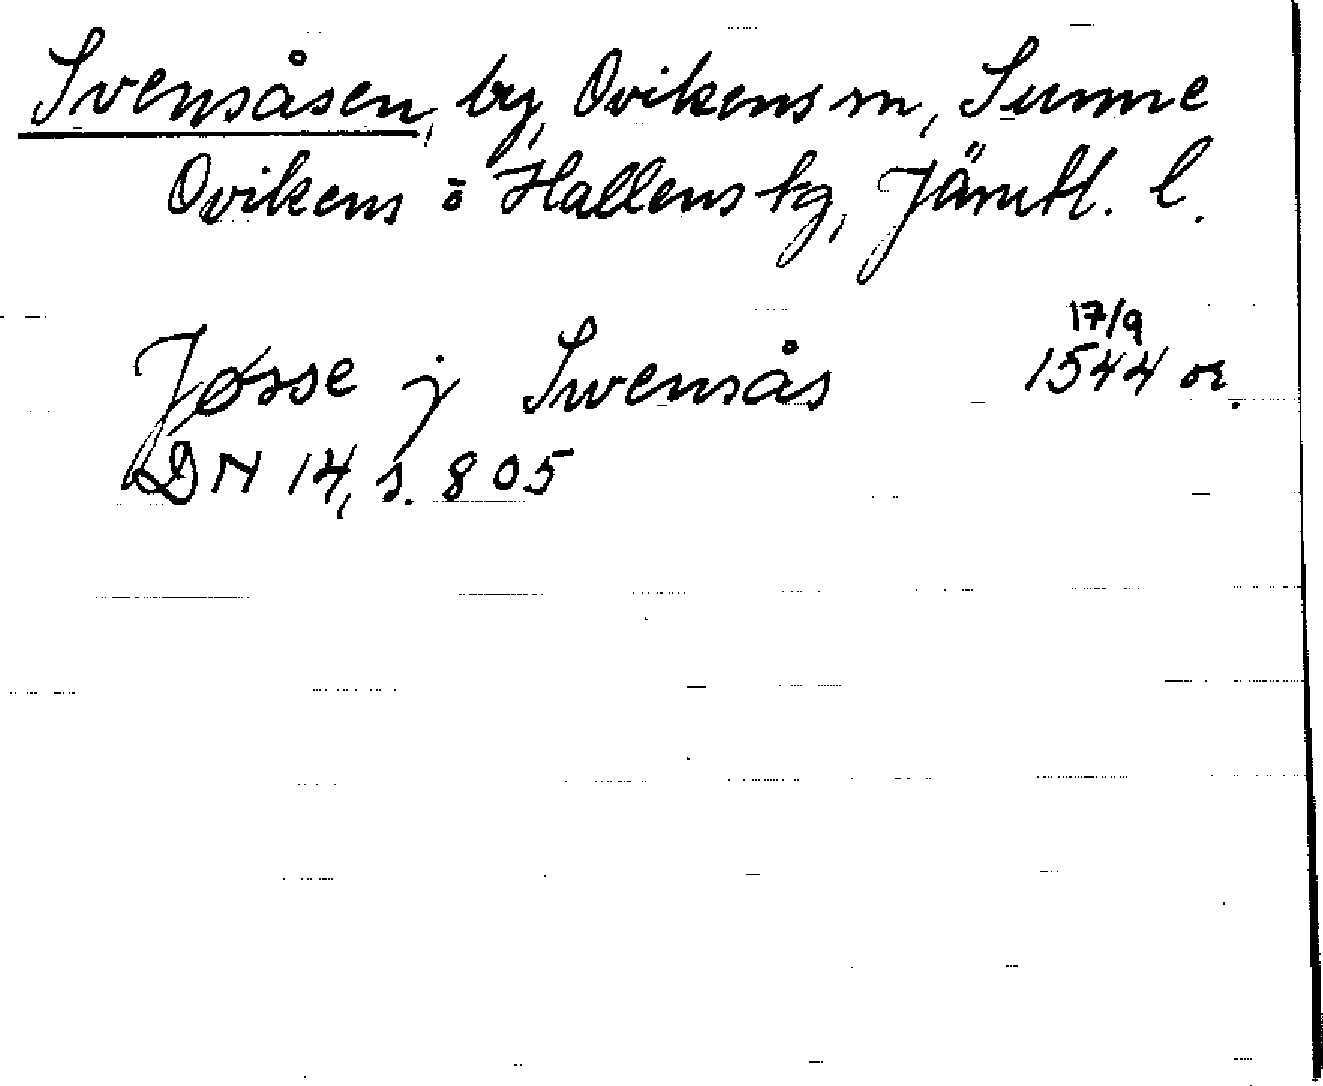 Svensåsen, by, Ovikens sn, Sunne
Ovikens o Hallens tg, Jämtl. l.
17/9
Jøsse j Swensås 1544 or.
DN 14, s. 805